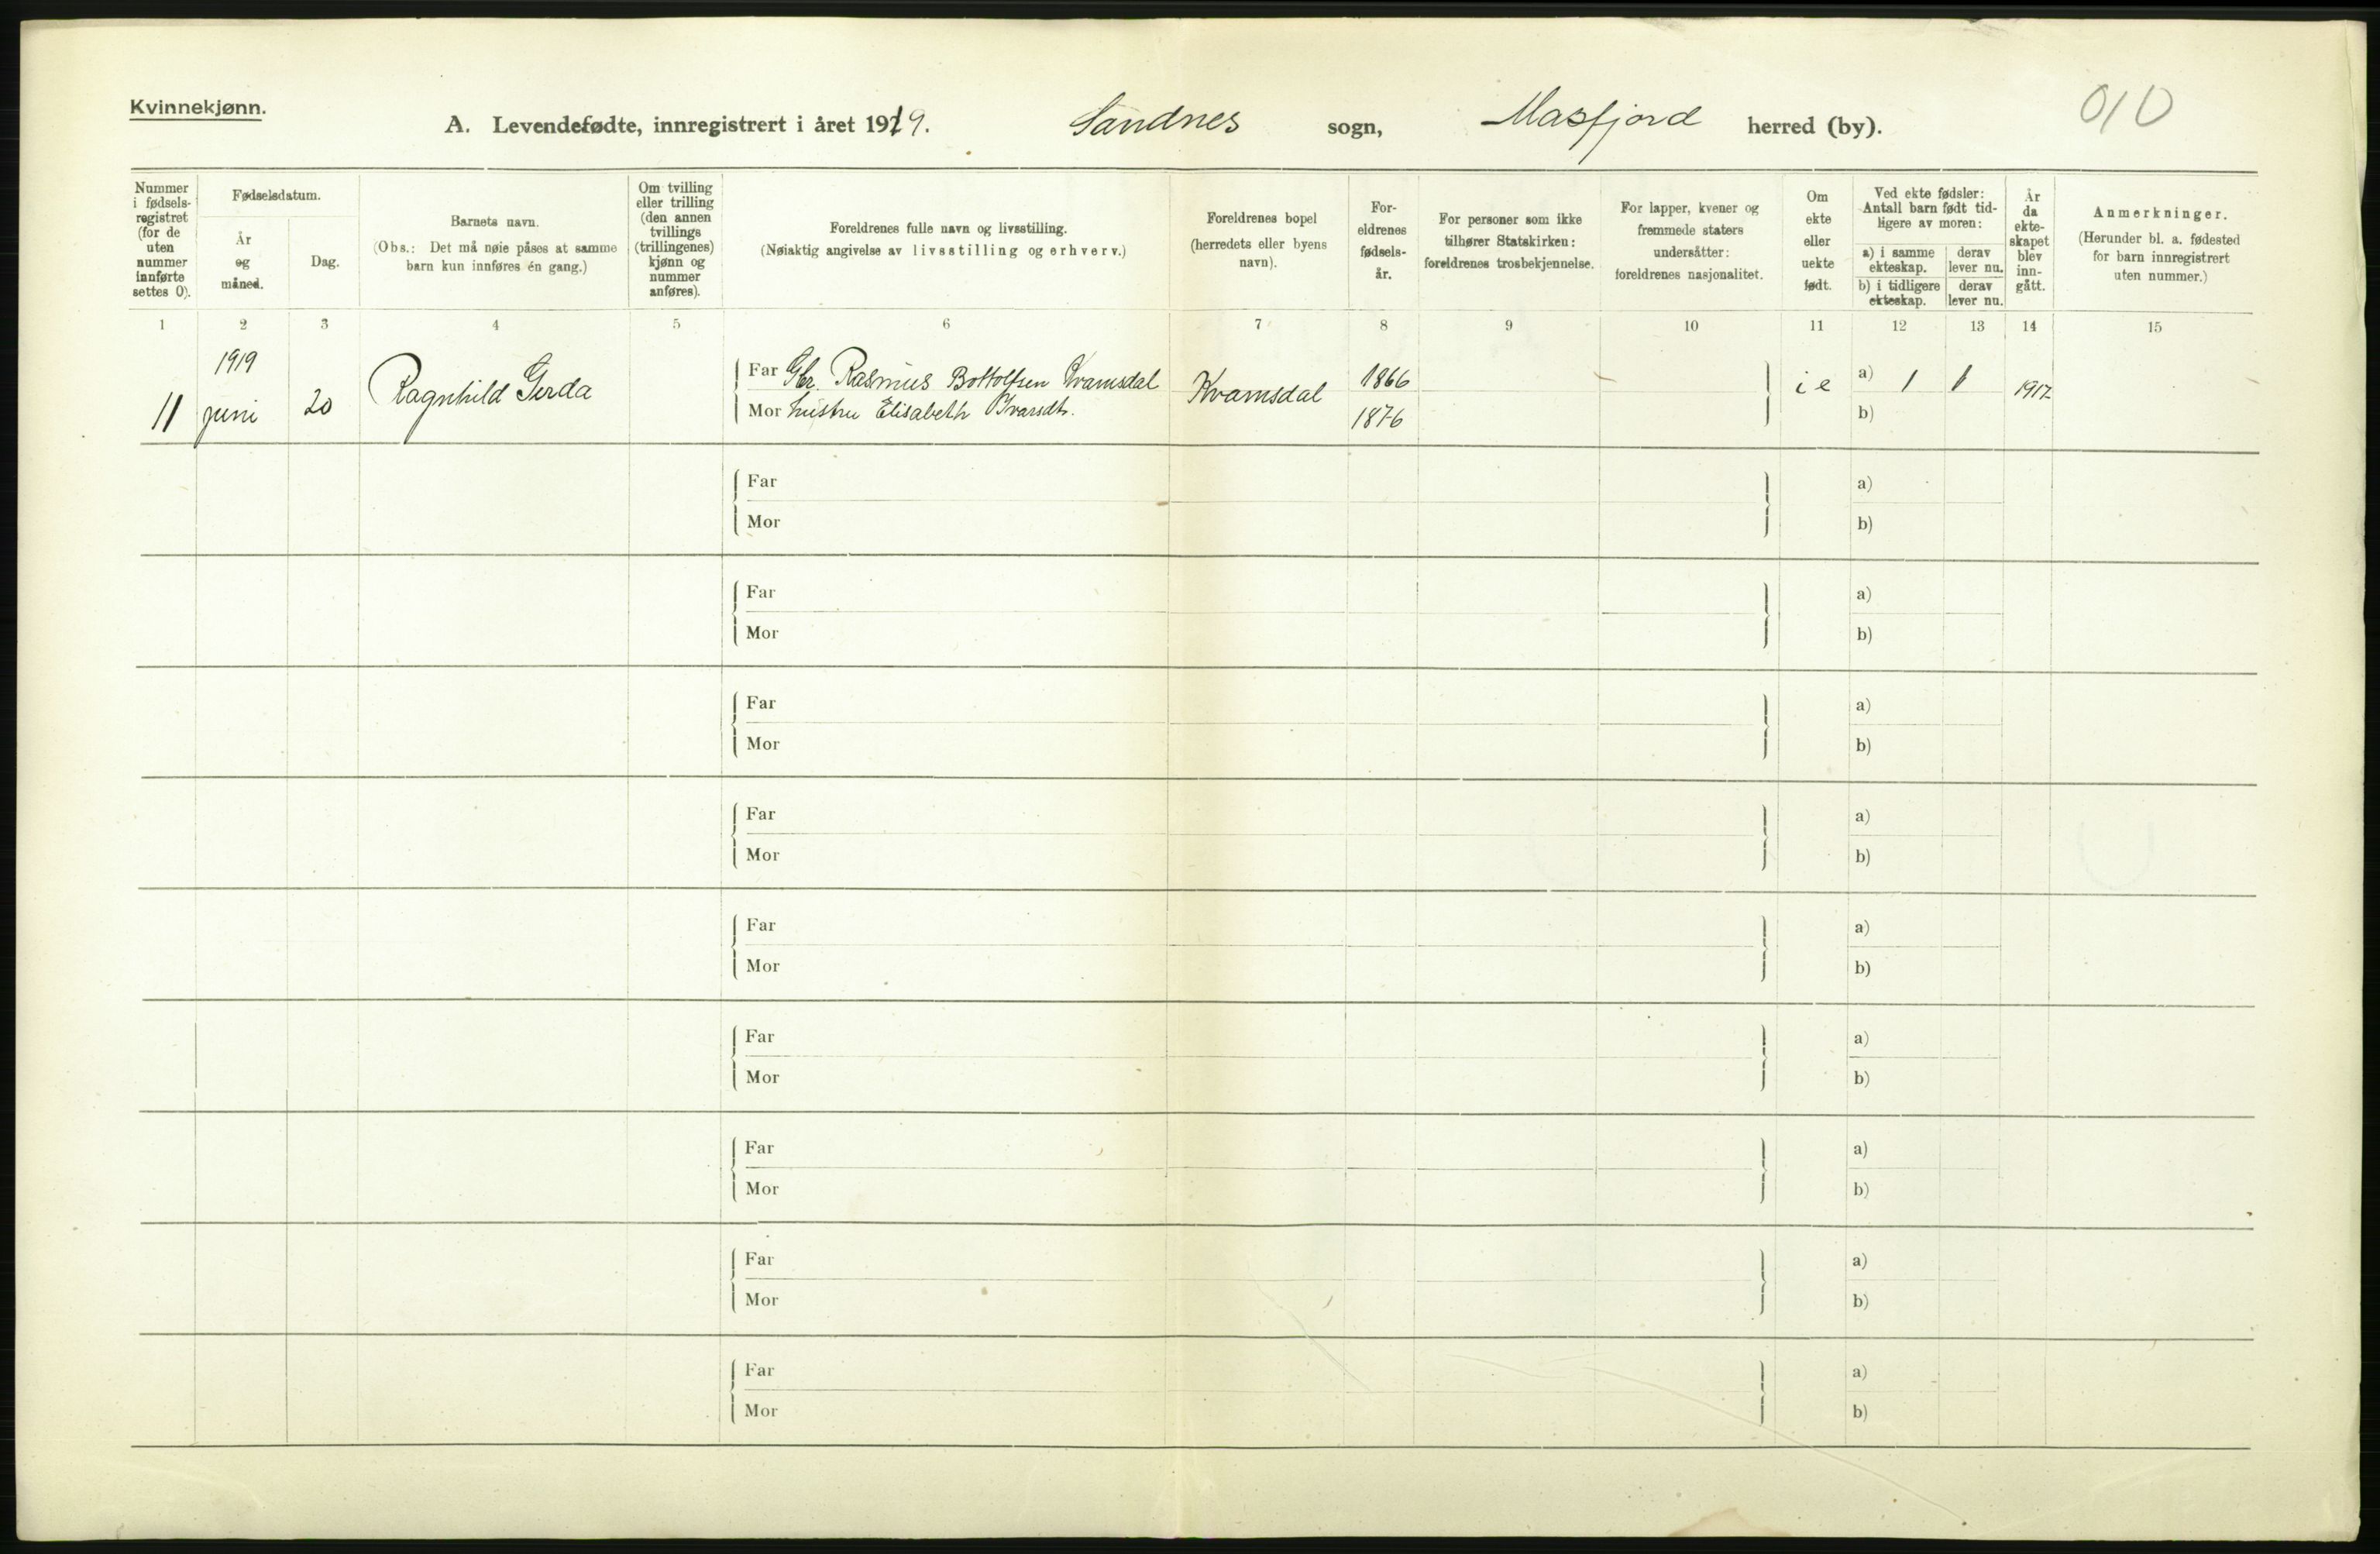 Kvinnekjønn.
A. Levendefødte, innregistrert i året 1919. Sandnes sogn, Masfjord herred (by).
010
Nummer i fødsels-registret (for de uten nummer innførte settes 0).
Fødselsdatum.
År og måned.
Dag.
Barnets navn.
(Obs.: Det må nøie påses at samme barn kun innføres én gang.)
Om tvilling eller trilling (den annen tvillings (trillingenes) kjønn og nummer anføres).
Foreldrenes fulle navn og livsstilling.
(Nøiaktig angivelse av livsstilling og erhverv.)
Foreldrenes bopel (herredets eller byens navn).
For-eldrenes fødsels-år.
For personer som ikke tilhører Statskirken: foreldrenes trosbekjennelse.
For lapper, kvener og fremmede staters undersåtter: foreldrenes nasjonalitet.
Om ekte eller uekte født.
Ved ekte fødsler: Antall barn født tid-ligere av moren:
a) i samme ekteskap.
derav lever nu.
b) i tidligere ekteskap.
derav lever nu.
År da ekte-skapet blev inn-gått.
Anmerkninger.
(Herunder bl. a. fødested for barn innregistrert uten nummer.)
1 2 3 4 5 6 7 8 9 10 11 12 13 14 15
11 1919 juni 20 Ragnhild Gerda
Far Gbr. Rasmus Bottolfsen Kvamsdal Kvamsdal 1866 i e a) 1 1 1917
Mor hustru Elisabeth Ivarsdtr. 1876 b)
Far a)
Mor b)
Far a)
Mor b)
Far a)
Mor b)
Far a)
Mor b)
Far a)
Mor b)
Far a)
Mor b)
Far a)
Mor b)
Far a)
Mor b)
Far a)
Mor b)